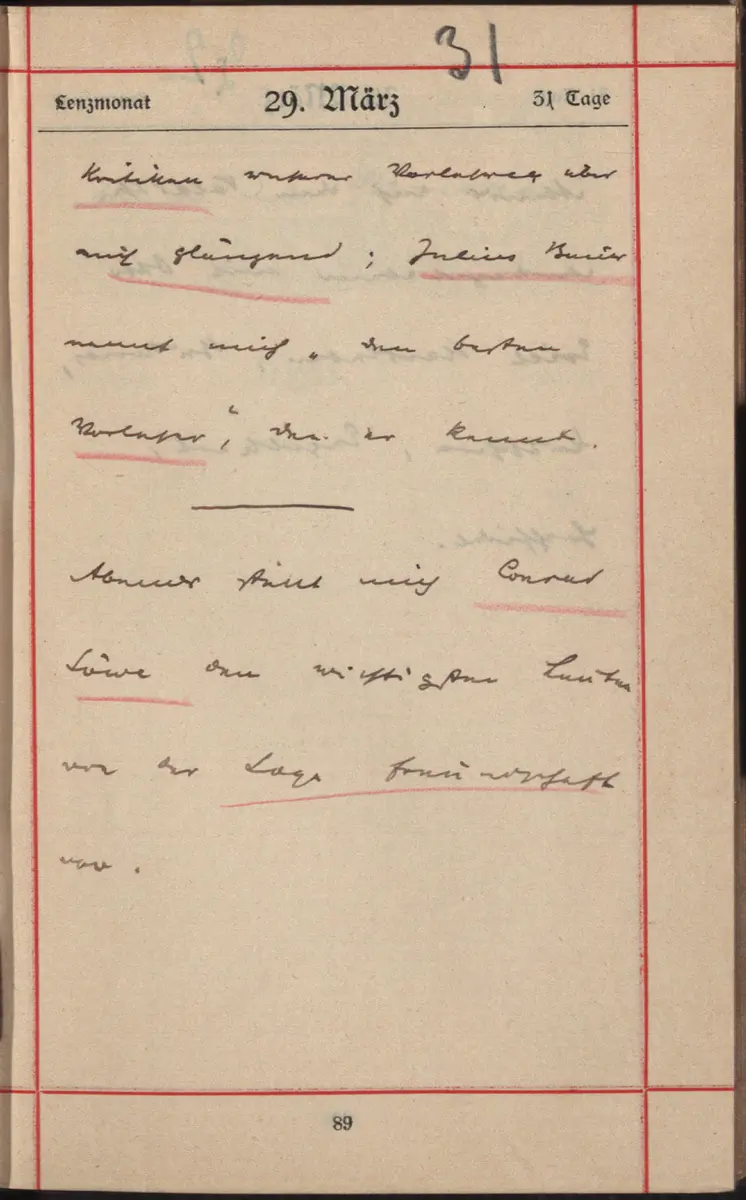 31
Lenzmonat 29. März 31 Tage
Kritiken unserer Vorlesung über
mich glänzend; Julius Bauer
nennt mich „den besten
Vorleser“, den er kennt.
Abends stellt mich Conrad
Löwe den wichtigsten Leuten
von der Loge Freundschaft
vor.
89